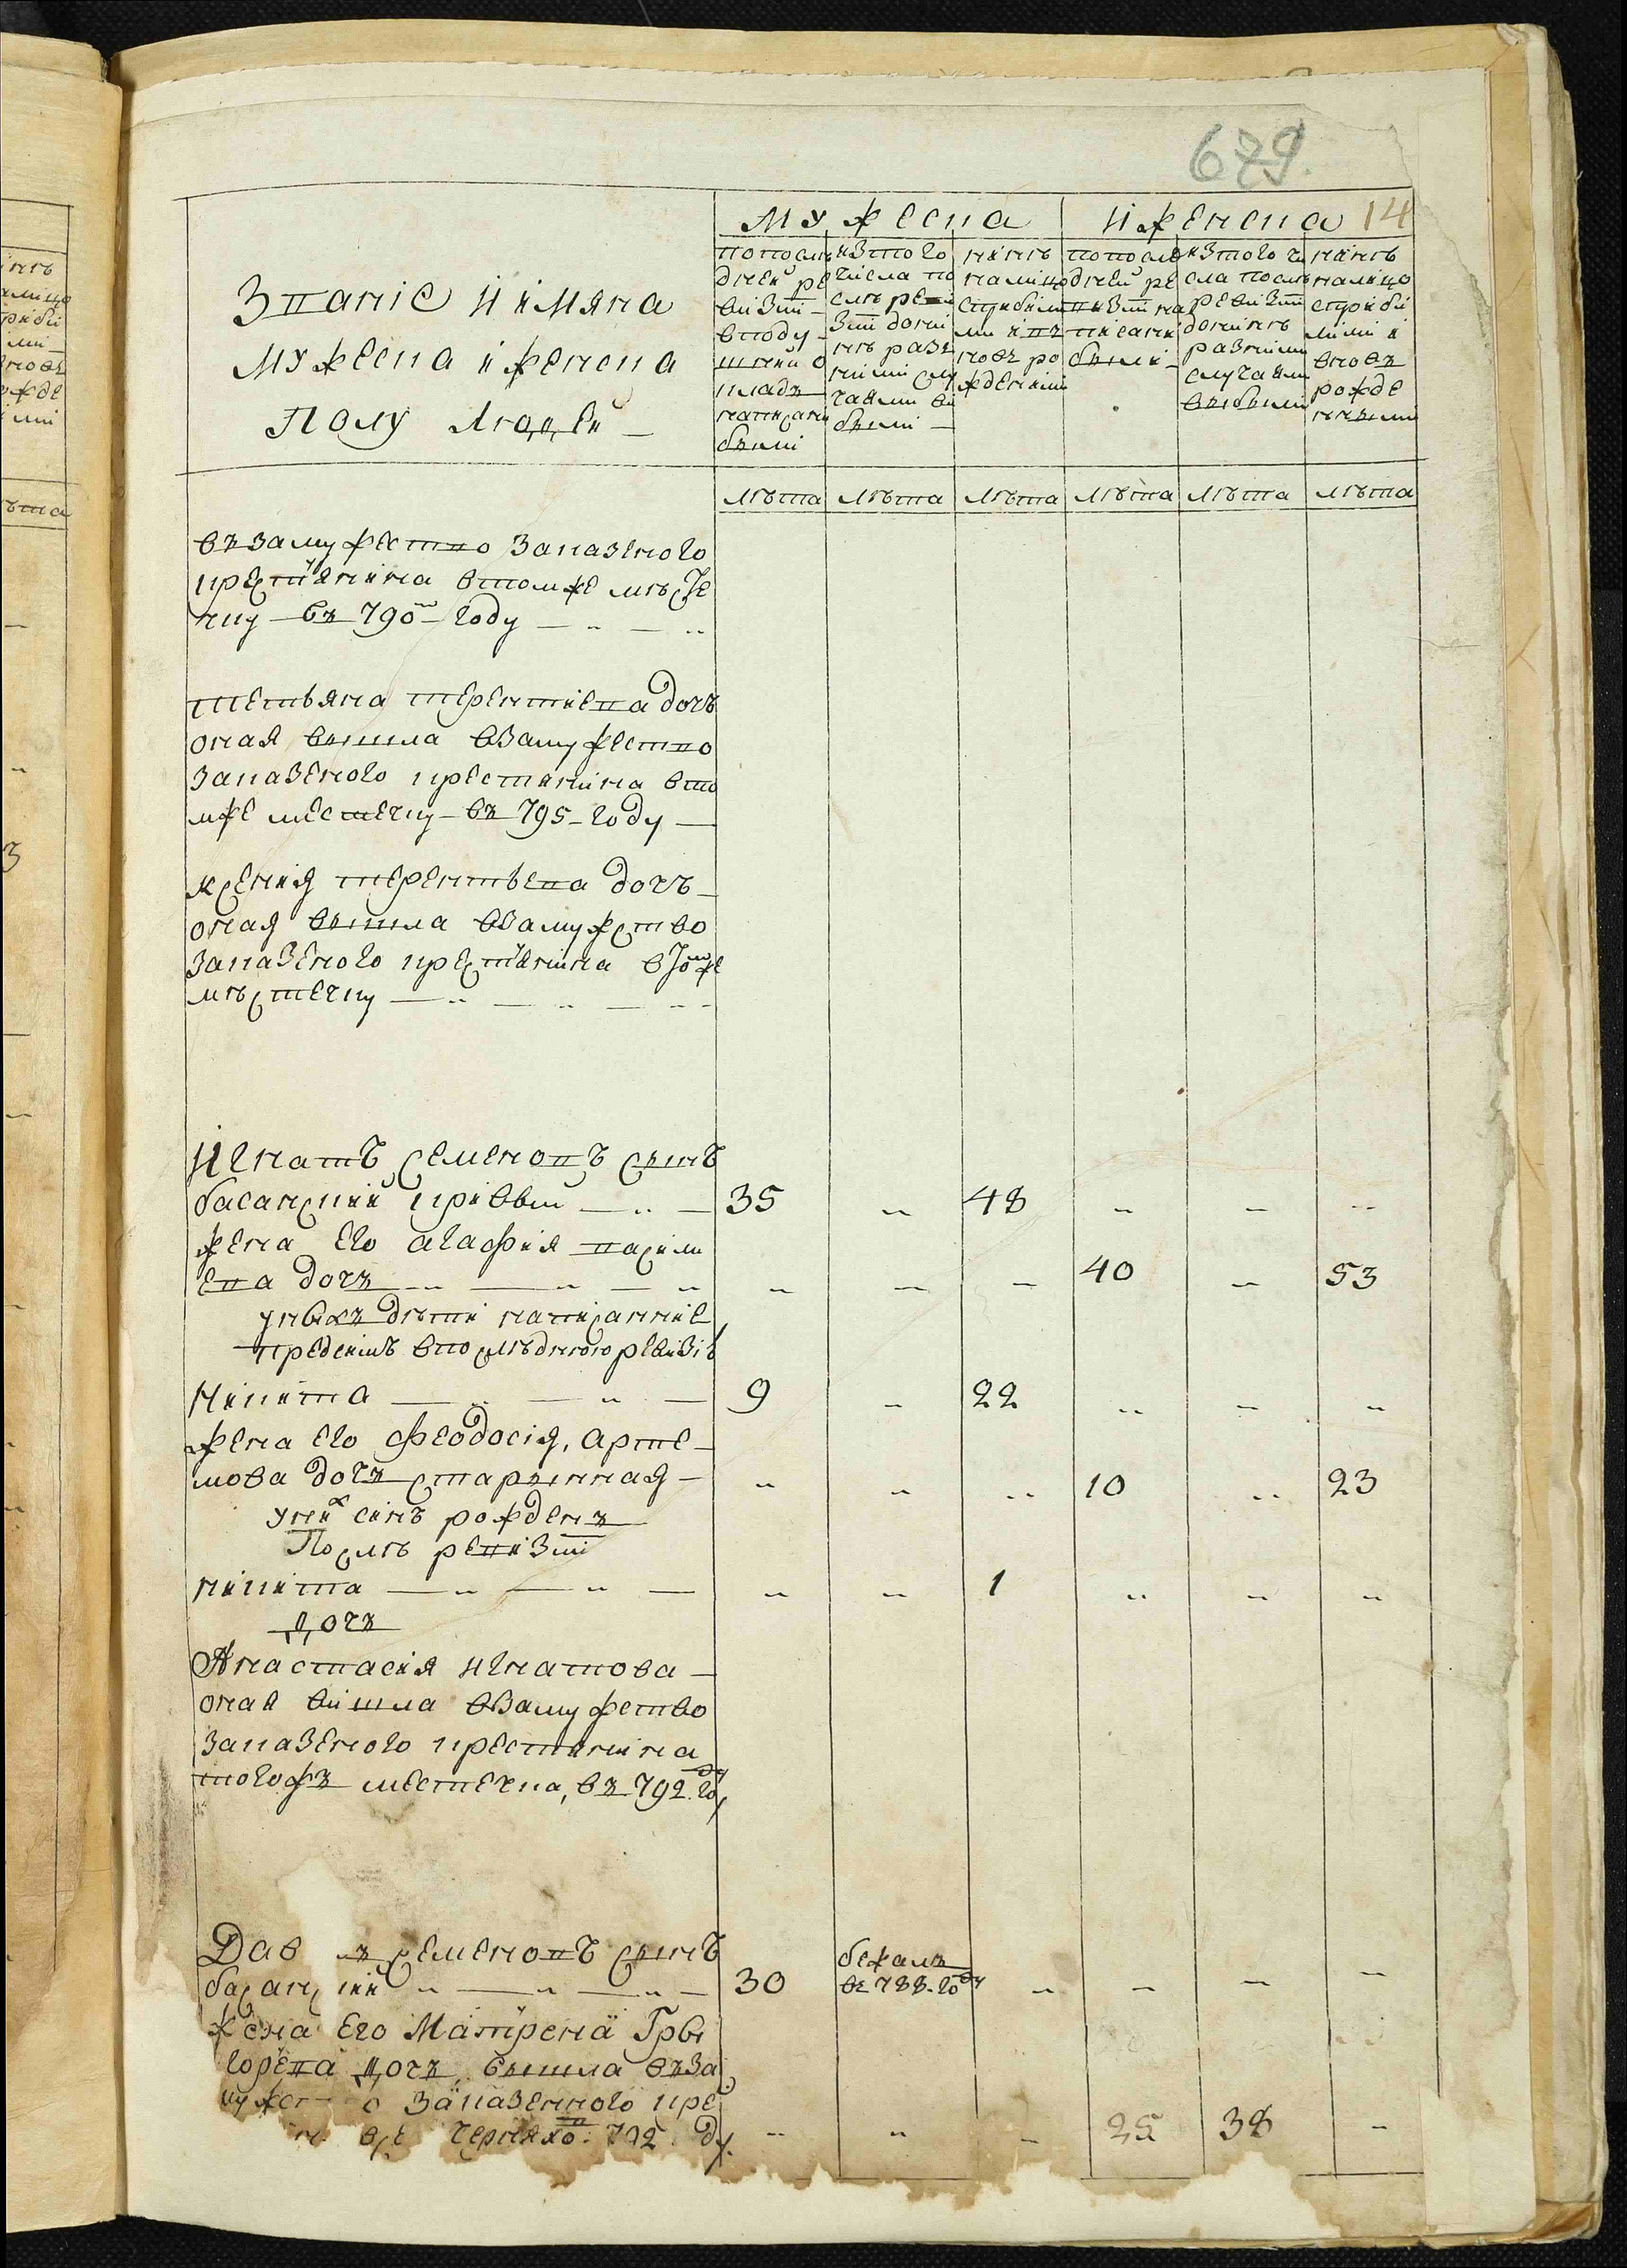 679.
14
Мужеска
И женска
Званіе и имяна
мужеска и женска
Полу людей
по посль
дней ре
визіи
вподу
шний о
кладъ
написани
были
изтого
числа по
слѣ реви
зіи доны
нѣ разъ
ними слу
чаями вы
были
нынѣ
налицо
сприбылы
ми и въ
новъ ро
жденними
по после
дней ре
визіи на
писани
были
изтого чи
сла послѣ
ревизіи
донынѣ
разними
случаями
выбыли
нынѣ
налицо
сприбы
лыми и
вновъ
рожде
нными
лѣта лѣта лѣта лѣта лѣта лѣта
въ замужество заказеного
крестьянина втомже мѣсте
чку въ 790м году
тетьяна терентиева дочь
оная вышла взамужество
заказеного крестянина вто
мже местечку въ 795 году
ксения терентьева дочъ
оная вышла взамужство
заказеного крестьянина втомже
мѣстечку
Игнатъ семеновъ сынъ
басанский кривый 35 „ 48 „ „ „
жена его агафия васили
ева дочъ „ „ „ 40 „ 53
унихъ дѣти написанние
предсимъ впослѣднюю ревизію
Никита 9 „ 22 „ „ „
жена его феодосія, арте
мова дочъ старинная „ „ „ 10 „ 23
уних синъ рожденъ
Послѣ ревизіи
никита „ „ 1 „ „ „
дочъ
Анастасия игнатова
оная вишла взамужство
заказеного крестянина
тогожъ местечка, въ 792 году
Дав ъ семеновъ сынъ
басанский 30 бежалъ „ „ „ „
въ 788 году
жена его Матрена Гри
горева дочъ, вышла вза
муже о заказенного кре
н всe черняхов: 792 ду. „ „ „ 25 38 „